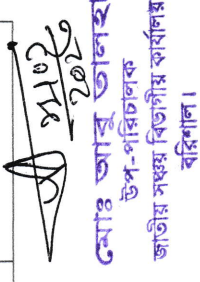 মোঃ আবু তালহা
উপ-পরিচালক
জাতীয় সঞ্চয় বিভাগীয় কার্যালয়
বরিশাল।